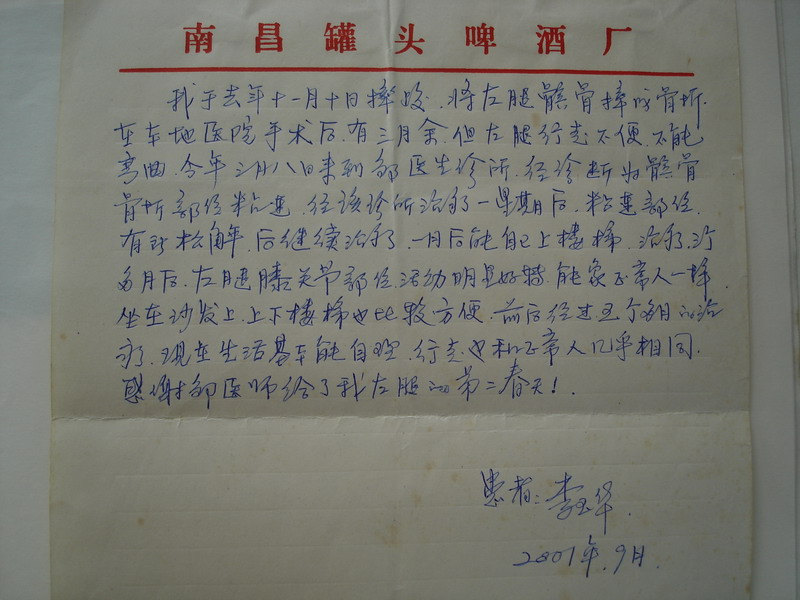 南昌罐头啤酒厂
我于去年十一月十日摔跤，将左腿髌骨摔成骨折．
在本地医院手术后，有三月余，但左腿行走不便，不能
弯曲，今年三月八日来到邹医生诊所，经诊断为髌骨
骨折部位粘连，经该诊所治疗一星期后，粘连部位，
有所松解，后继续治疗，一月后能自己上楼梯，治疗
多月后，左腿膝关节部位活动明显好转，能象正常人一样
坐在沙发上，上下楼梯也比较方便．前后经过五个多月的治
疗，现在生活基本能自理，行走也和正常人几乎相同．
感谢邹医师给了我左腿的第二春天！
患者：李玉华．
2001年．9月．